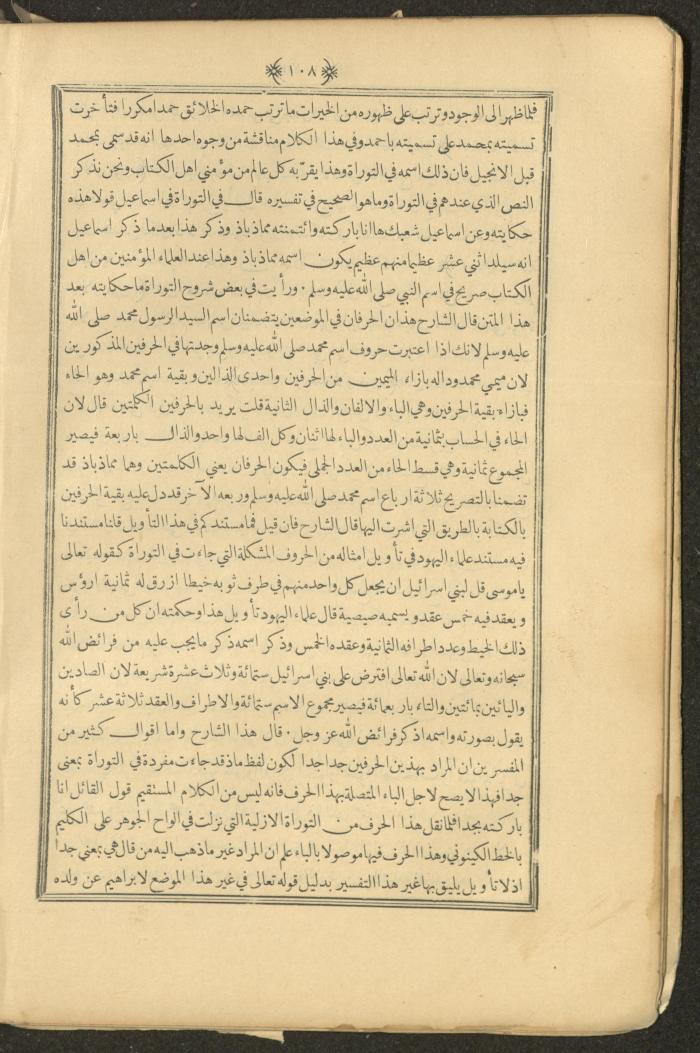 ١٠٨
فلما ظهر الى الوجود وترتب على ظهوره من الخيرات ما ترتب حمده الخلائق حمدا مكررا فتأخرت
تسميته بمحمد على تسميته باحمد وفي هذا الكلام مناقشة من وجوه احدها انه قد سمى بمحمد
قبل الانجيل فان ذلك اسمه في التوراة وهذا يقرّ به كل عالم من مؤمني اهل الكتاب ونحن نذكر
النص الذي عندهم في التوراة وما هو الصحيح في تفسيره قال في التوراة في اسماعيل قولا هذه
حكايته وعن اسماعيل شعبك ها انا باركته وائتمنته مماذباذ وذكر هذا بعد ما ذكر اسماعيل
انه سيلد اثني عشر عظيما منهم عظيم يكون اسمه مماذباذ وهذا عند العلماء المؤمنين من اهل
الكتاب صريح في اسم النبي صلى الله عليه وسلم . ورأيت في بعض شروح التوراة ما حكايته بعد
هذا المتن قال الشارح هذان الحرفان في الموضعين يتضمنان اسم السيد الرسول محمد صلى الله
عليه وسلم لانك اذا اعتبرت حروف اسم محمد صلى الله عليه وسلم وجدتها في الحرفين المذكورين
لان ميمي محمد وداله بازاء الميمين من الحرفين واحدى الذالين وبقية اسم محمد وهو الحاء
فبازاء بقية الحرفين وهي الباء والالفان والذال الثانية قلت يريد بالحرفين الكلمتين قال لان
الحاء في الحساب بثمانية من العدد والباء لها اثنان وكل الف لها واحد والذال باربعة فيصير
المجموع ثمانية وهي قسط الحاء من العدد الجملي فيكون الحرفان يعني الكلمتين وهما مماذباذ قد
تضمنا بالتصريح ثلاثة ارباع اسم محمد صلى الله عليه وسلم وربعه الآخر قد دل عليه بقية الحرفين
بالكناية بالطريق التي اشرت اليها قال الشارح فان قيل فما مستندكم في هذا التأويل قلنا مستندنا
فيه مستند علماء اليهود في تأويل امثاله من الحروف المشكلة التي جاءت في التوراة كقوله تعالى
ياموسى قل لبني اسرائيل ان يجعل كل واحد منهم في طرف ثوبه خيطا ازرق له ثمانية ارؤس
ويعقد فيه خمس عقد ويسميه صيصية قال علماء اليهود تأويل هذا وحكمته ان كل من رأى
ذلك الخيط وعدد اطرافه الثمانية وعقده الخمس وذكر اسمه ذكر ما يجب عليه من فرائض الله
سبحانه وتعالى لان الله تعالى افترض على بني اسرائيل ستمائة وثلاث عشرة شريعة لان الصادين
واليائين بمائتين والتاء باربعمائة فيصير مجموع الاسم ستمائة والاطراف والعقد ثلاثة عشر كأنه
يقول بصورته واسمه اذكر فرائض الله عز وجل . قال هذا الشارح واما اقوال كثير من
المفسرين ان المراد بهذين الحرفين جدا جدا لكون لفظ ماذ قد جاءت مفردة في التوراة بمعنى
جدا فهذا لا يصح لاجل الباء المتصلة بهذا الحرف فانه ليس من الكلام المستقيم قول القائل انا
باركته بجدا فلما نقل هذا الحرف من التوراة الازلية التي نزلت في الواح الجوهر على الكليم
بالخط الكينوني وهذا الحرف فيها موصولا بالباء علم ان المراد غير ما ذهب اليه من قال هي بمعني جدا
اذ لا تأويل يليق بها غير هذا التفسير بدليل قوله تعالى في غير هذا الموضع لابراهيم عن ولده